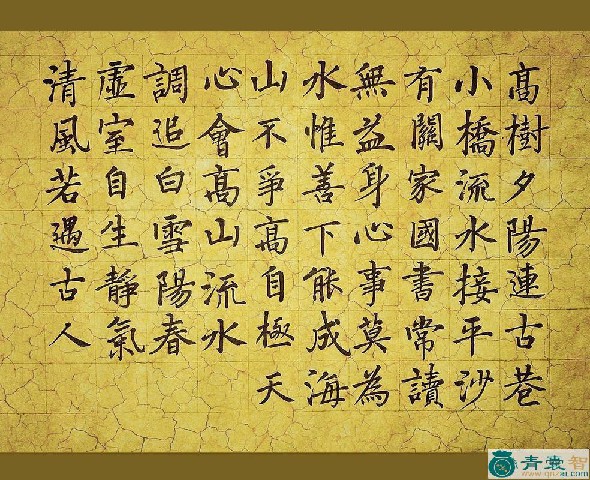 高樹夕陽連古巷
小橋流水接平沙
有關家國書常讀
無益身心事莫為
水惟善下能成海
山不爭高自極天
心會高山流水
調追白雪陽春
虛室自生靜氣
清風若遇古人
青囊智
www.qnzai.com